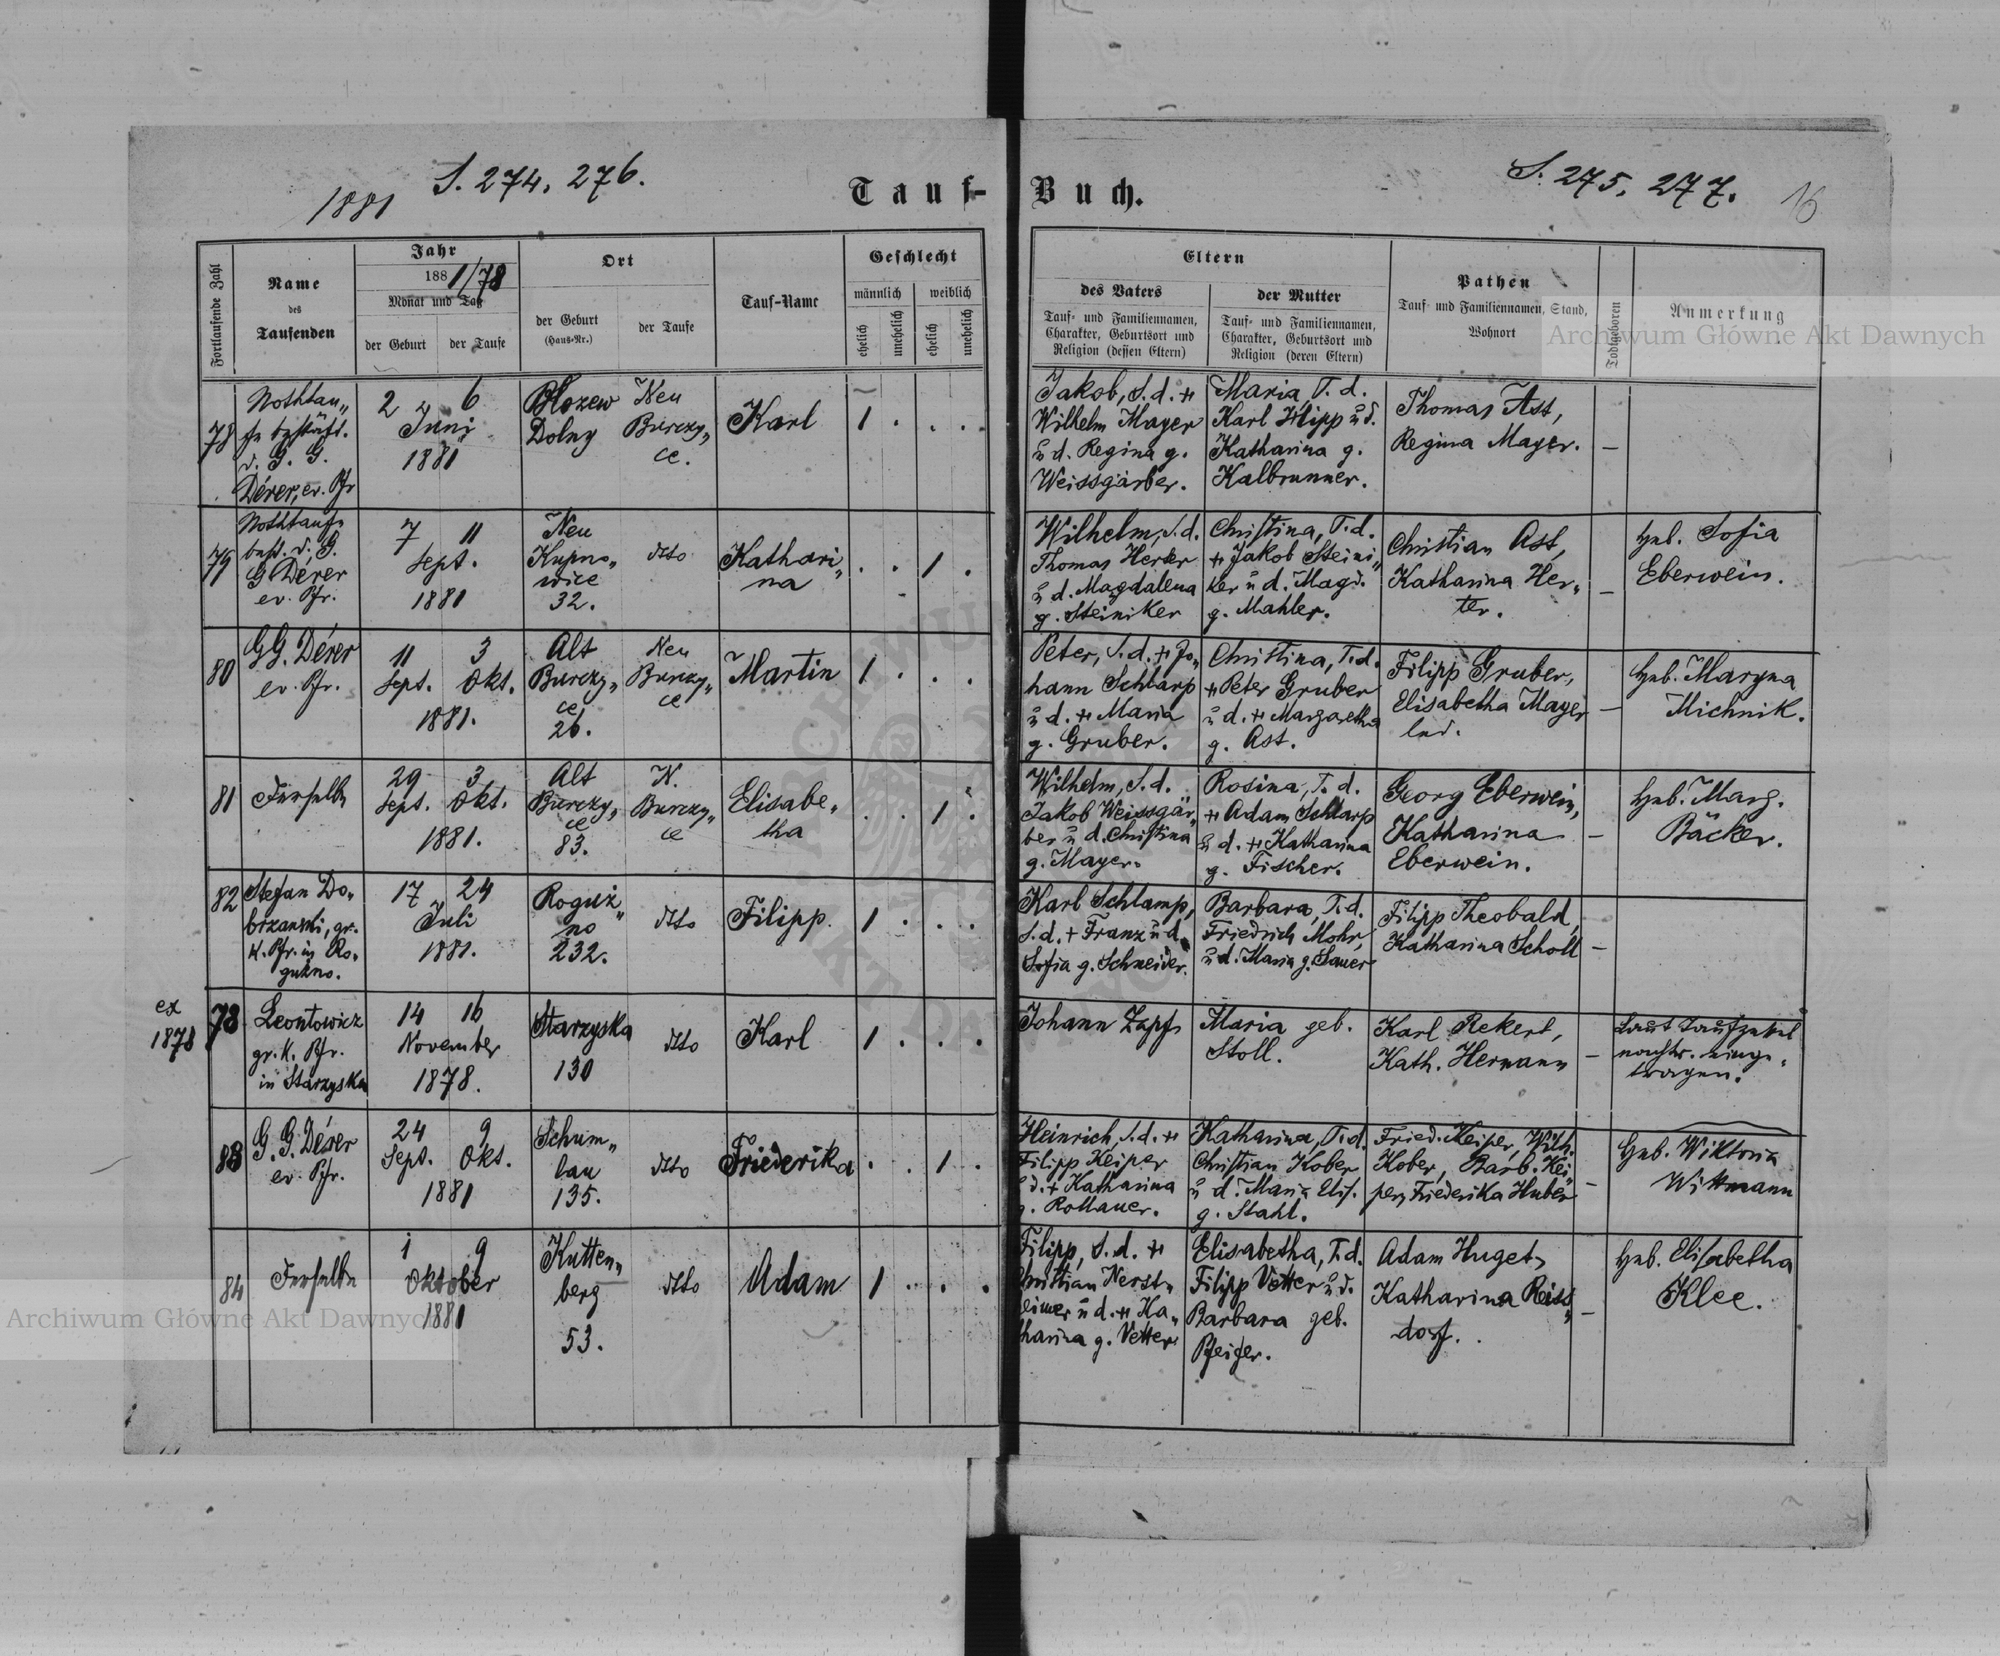 1881
S. 274. 276.
S. 275. 277.
16
Tauf-Buch.
Fortlaufende Zahl
Name
des
Taufenden
Jahr
1881/78
Monat und Tag
der Geburt
der Taufe
Ort
der Geburt
(Haus-Nr.)
der Taufe
Tauf-Name
Geschlecht
männlich
weiblich
ehelich
unehelich
ehelich
unehelich
Eltern
des Vaters
Tauf- und Familiennamen,
Charakter, Geburtsort und
Religion (dessen Eltern)
der Mutter
Tauf- und Familiennamen,
Charakter, Geburtsort und
Religion (deren Eltern)
Pathen
Tauf- und Familiennamen, Stand,
Wohnort
Todtgeboren
Anmerkung
Archiwum Główne Akt Dawnych
78
Nothtau„
fe bestätt.
d. G. G.
Dérer, ev. Pfr
2 6
Juni
1881
Błozew
Dolny
Neu
Burczy„
ce.
Karl
1 . . .
Jakob, S. d. ++
Wilhelm Mayer
u d. Regina g.
Weissgärber.
Maria, T. d.
Karl Hipp u d.
Katharina g.
Kalbrunner.
Thomas Ast,
Regina Mayer.
–
79
Nothtauf-
best. d. G.
G Dérer
ev. Pfr.
7 11
Sept.
1881
Neu
Kupno„
wice
32.
dtto
Kathari„
na
. . 1 .
Wilhelm, S. d.
Thomas Herter
u d. Magdalena
g. Steiniker
Christina, T. d.
++ Jakob Steini„
ker u d. Magd.
g. Mahler.
Christian Ast,
Katharina Her„
ter.
–
Heb. Sofia
Eberwein.
80
GG. Dérer
ev. Pfr.
11 3
Sept. Okt.
1881.
Alt
Burczy„
ce
26.
Neu
Burczy„
ce
Martin
1 . . .
Peter, S. d. ++ Jo„
hann Schlarp
u d. ++ Maria
g. Gruber.
Christina, T. d.
++ Peter Gruber
u d. ++ Margaretha
g. Ast.
Filipp Gruber,
Elisabetha Mayer
led.
–
Heb. Maryna
Michnik.
81
Derselbe
29 3
Sept. Okt.
1881.
Alt
Burczy„
ce
83.
N.
Burczy„
ce
Elisabe„
tha
. . 1 .
Wilhelm, S. d.
Jakob Weissgär„
ber u d. Christina
g. Mayer.
Rosina, T. d.
++ Adam Schlarp
u d. ++ Katharina
g. Fischer.
Georg Eberwein,
Katharina
Eberwein.
–
Heb. Marg.
Bäcker.
82
Stefan Do„
brzanski, gr.
k. Pfr. in Ro„
guzno.
17 24
Juli
1881.
Roguż„
no
232.
dtto
Filipp.
1 . . .
Karl Schlamp,
S. d. + Franz u d.
Sofia g. Schneider.
Barbara, T. d.
Friedrich Mohr,
u d. Maria g. Sauer
Filipp Theobald,
Katharina Scholl
–
ex
1878
78
Leontowicz
gr. k. Pfr.
in Starzyska
14 16
November
1878.
Starzyska
130
dtto
Karl
1 . . .
Johann Zapf
Maria geb.
Stoll.
Karl Rekert,
Kath. Hermann
–
Laut Taufzettel
nachtr. einge„
tragen.
83
G. G. Dérer
ev. Pfr.
24 9
Sept. Okt.
1881
Schum„
lau
135.
dtto
Friederika
. . 1 .
Heinrich, S. d. ++
Filipp Keiper
u d. + Katharina
g. Rollauer.
Katharina, T. d.
Christian Kober
u d. Maria Elis.
g. Stahl.
Fried. Keiper, Wilh.
Kober, Barb. Kei„
per, Friederika Huber
–
Heb. Wiktoria
Wittmann
84
Derselbe
1 9
Oktober
1881
Kutten„
berg
53.
dtto
Adam
1 . . .
Filipp, S. d. ++
Christian Kerst„
eimer u d. ++ Ka„
tharina g. Vetter
Elisabetha, T. d.
Filipp Vetter u d.
Barbara geb.
Pfeifer.
Adam Huget,
Katharina Reiss„
dorf.
–
Heb. Elisabetha
Klee.
Archiwum Główne Akt Dawnych